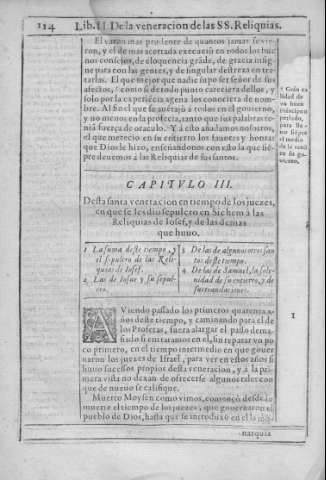 114 Lib. II. De la veneracion de las SS. Reliquias.
El varon mas prudente de quantos jamas se vie-
ron, y el de mas acertada execucion en todos los bue
nos consejos, de eloquencia grãde, de gracia insig
ne para con las gentes, y de singular destreza en tra-
tarlas. El que mejor que nadie supo ser señor de sus
afectos, como si de todo punto careciera dellos, y
solo por la experiécia agena los conociera de nom-
bre. Al fin el que se auétajò à todos en el gouierno,
y no menos en la profecia, tanto que sus palabras te-
niã fuerça de oraculo. Y à este
el que merecio en su entierro los fauores y honras
que Dios le hizo, enseñandonos con esto la que siẽ-
pre deuemos à las Reliquias de sus santos.
CAPITVLO III.
Desta santa veneracion en tiempo de los juezes,
en que se les diò sepulcro en Sichem à las
Reliquias de Iosef, y de las demas
que huuo.
1 La suma deste tiempo, y
el sepulcro de las Reli-
quias de Iosef.
2 Las de Iosue y su sepul-
cro.
3 De las de algunos otros san
tos deste tiempo.
4 De las de Samuel, la sole-
nidad de su entierro, y de
sus translaciones.
AViendo passado los primeros quarenta a-
ños deste tiempo, y caminando para el de
los Profetas, fuera alargar el passo dema-
siado si entraramos en el, sin reparar vn po
co primero, en el tiempo intermedio en que gouer
naron los juezes de Israel, para ver en essos años si
huuo sucessos propios desta veneracion, y à la pri-
mera vista no dexan de ofrecerse algunos tales con
que de nueuo se califique.
1
Muerto Moysen como vimos, començò desde su
muerte el tiempo de los juezes, que gouernaron el
pueblo de Dios, hasta que se introduxo en el la mo-
narquia